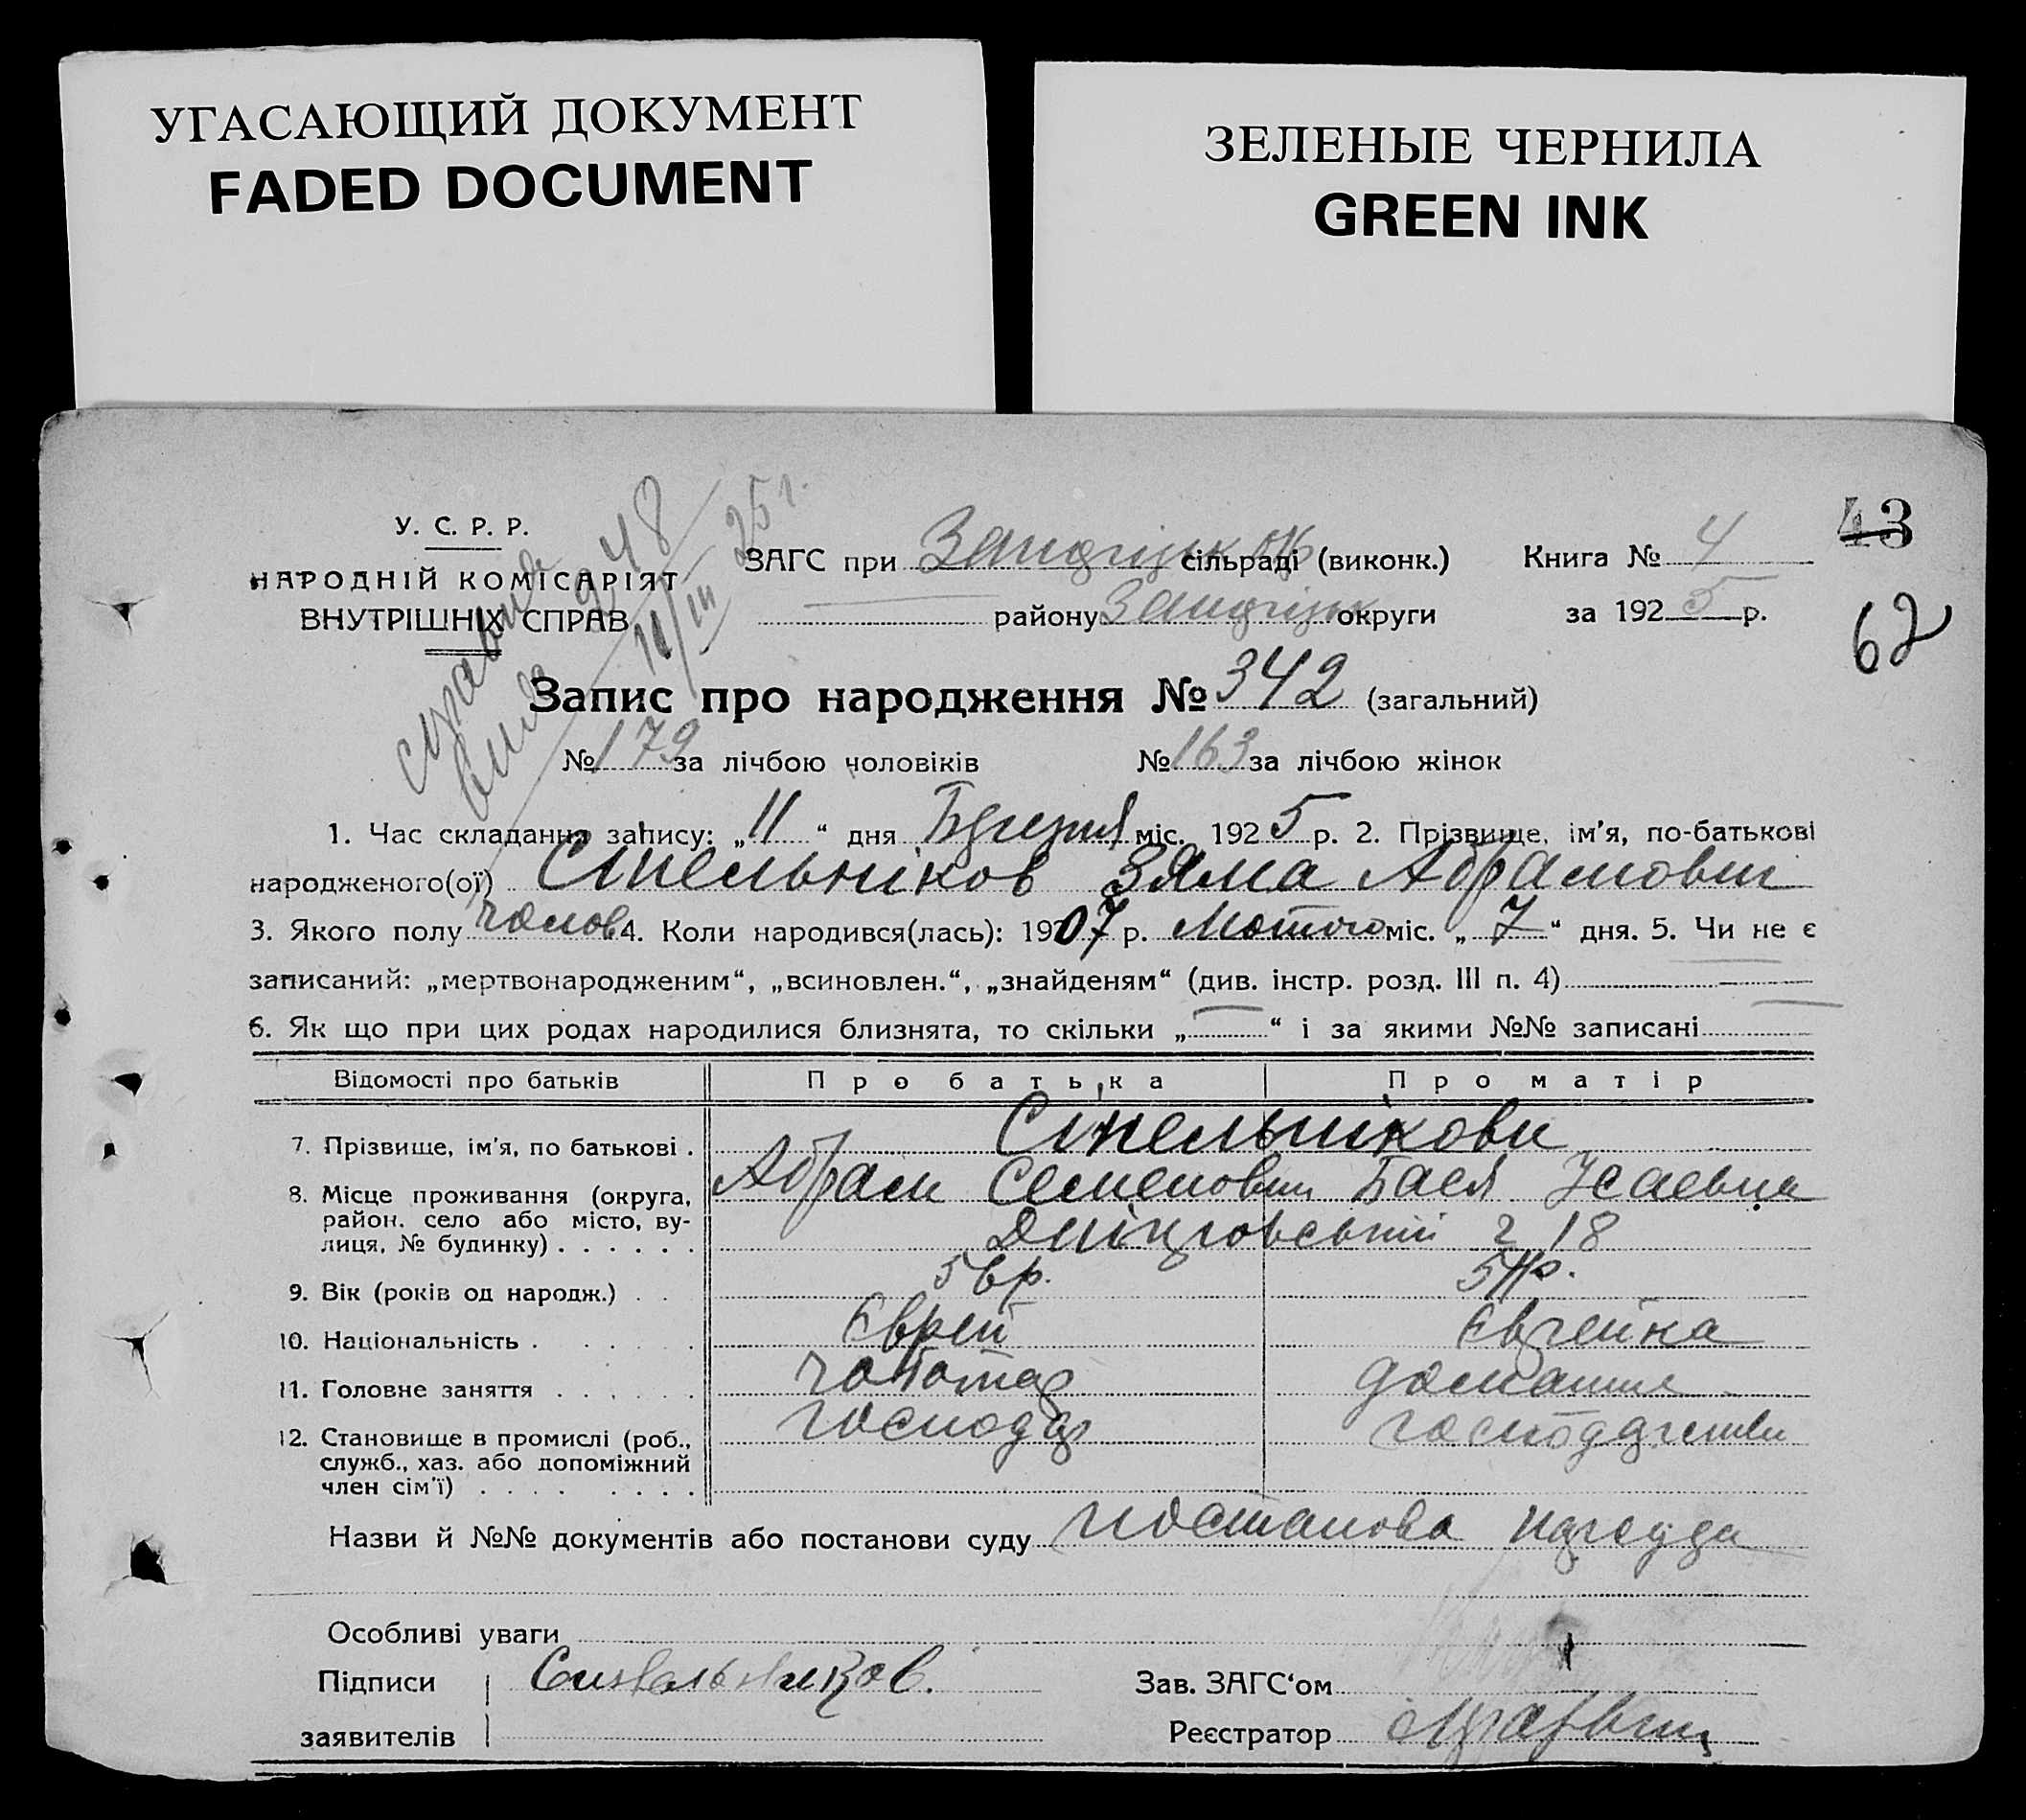 УГАСАЮЩИЙ ДОКУМЕНТ
FADED DOCUMENT
ЗЕЛЕНЫЕ ЧЕРНИЛА
GREEN INK
43
62
У. С. Р. Р.
НАРОДНІЙ КОМІСАРІЯТ
ВНУТРІШНІХ СПРАВ
948
11/III 25 г.
ЗАГС при сільраді (виконк.) Книга № 4
району округи за 1925 р.
Запис про народження № 342 (загальний)
№ 179 за лічбою чоловіків № 163 за лічбою жінок
1. Час складання запису: „11“ дня Березня міс. 1925 р. 2. Прізвище, ім'я, по-батькові
народженого(ої) Сінельніков Зяма Абрамович
3. Якого полу чолов 4. Коли народився(лась): 1907 р. Лютого міс. „7“ дня. 5. Чи не є
записаний: „мертвонародженим“, „всиновлен.“, „знайденям“ (див. інстр. розд. III п. 4)
6. Як що при цих родах народилися близнята, то скільки „—“ і за якими №№ записані
Відомості про батьків Про батька Про матір
7. Прізвище, ім'я, по батькові . Сінельнікови
Абрам Семенович Бася Ісаевна
8. Місце проживання (округа, район. село або місто, вулиця, № будинку) . . . . . . 18
9. Вік (років од народж.) . . 56 р. 54 р.
10. Національність . . . . . . Єврей Єврейка
11. Головне заняття . . . . . . чоботар домашнє
12. Становище в промислі (роб., служб., хаз. або допоміжний член сім'ї) . . . . . . . . господар господарство
Назви й №№ документів або постанови суду постанова Нарсуда
Особливі уваги
Підписи заявителів Синельников.
Зав. ЗАГС'ом
Реєстратор